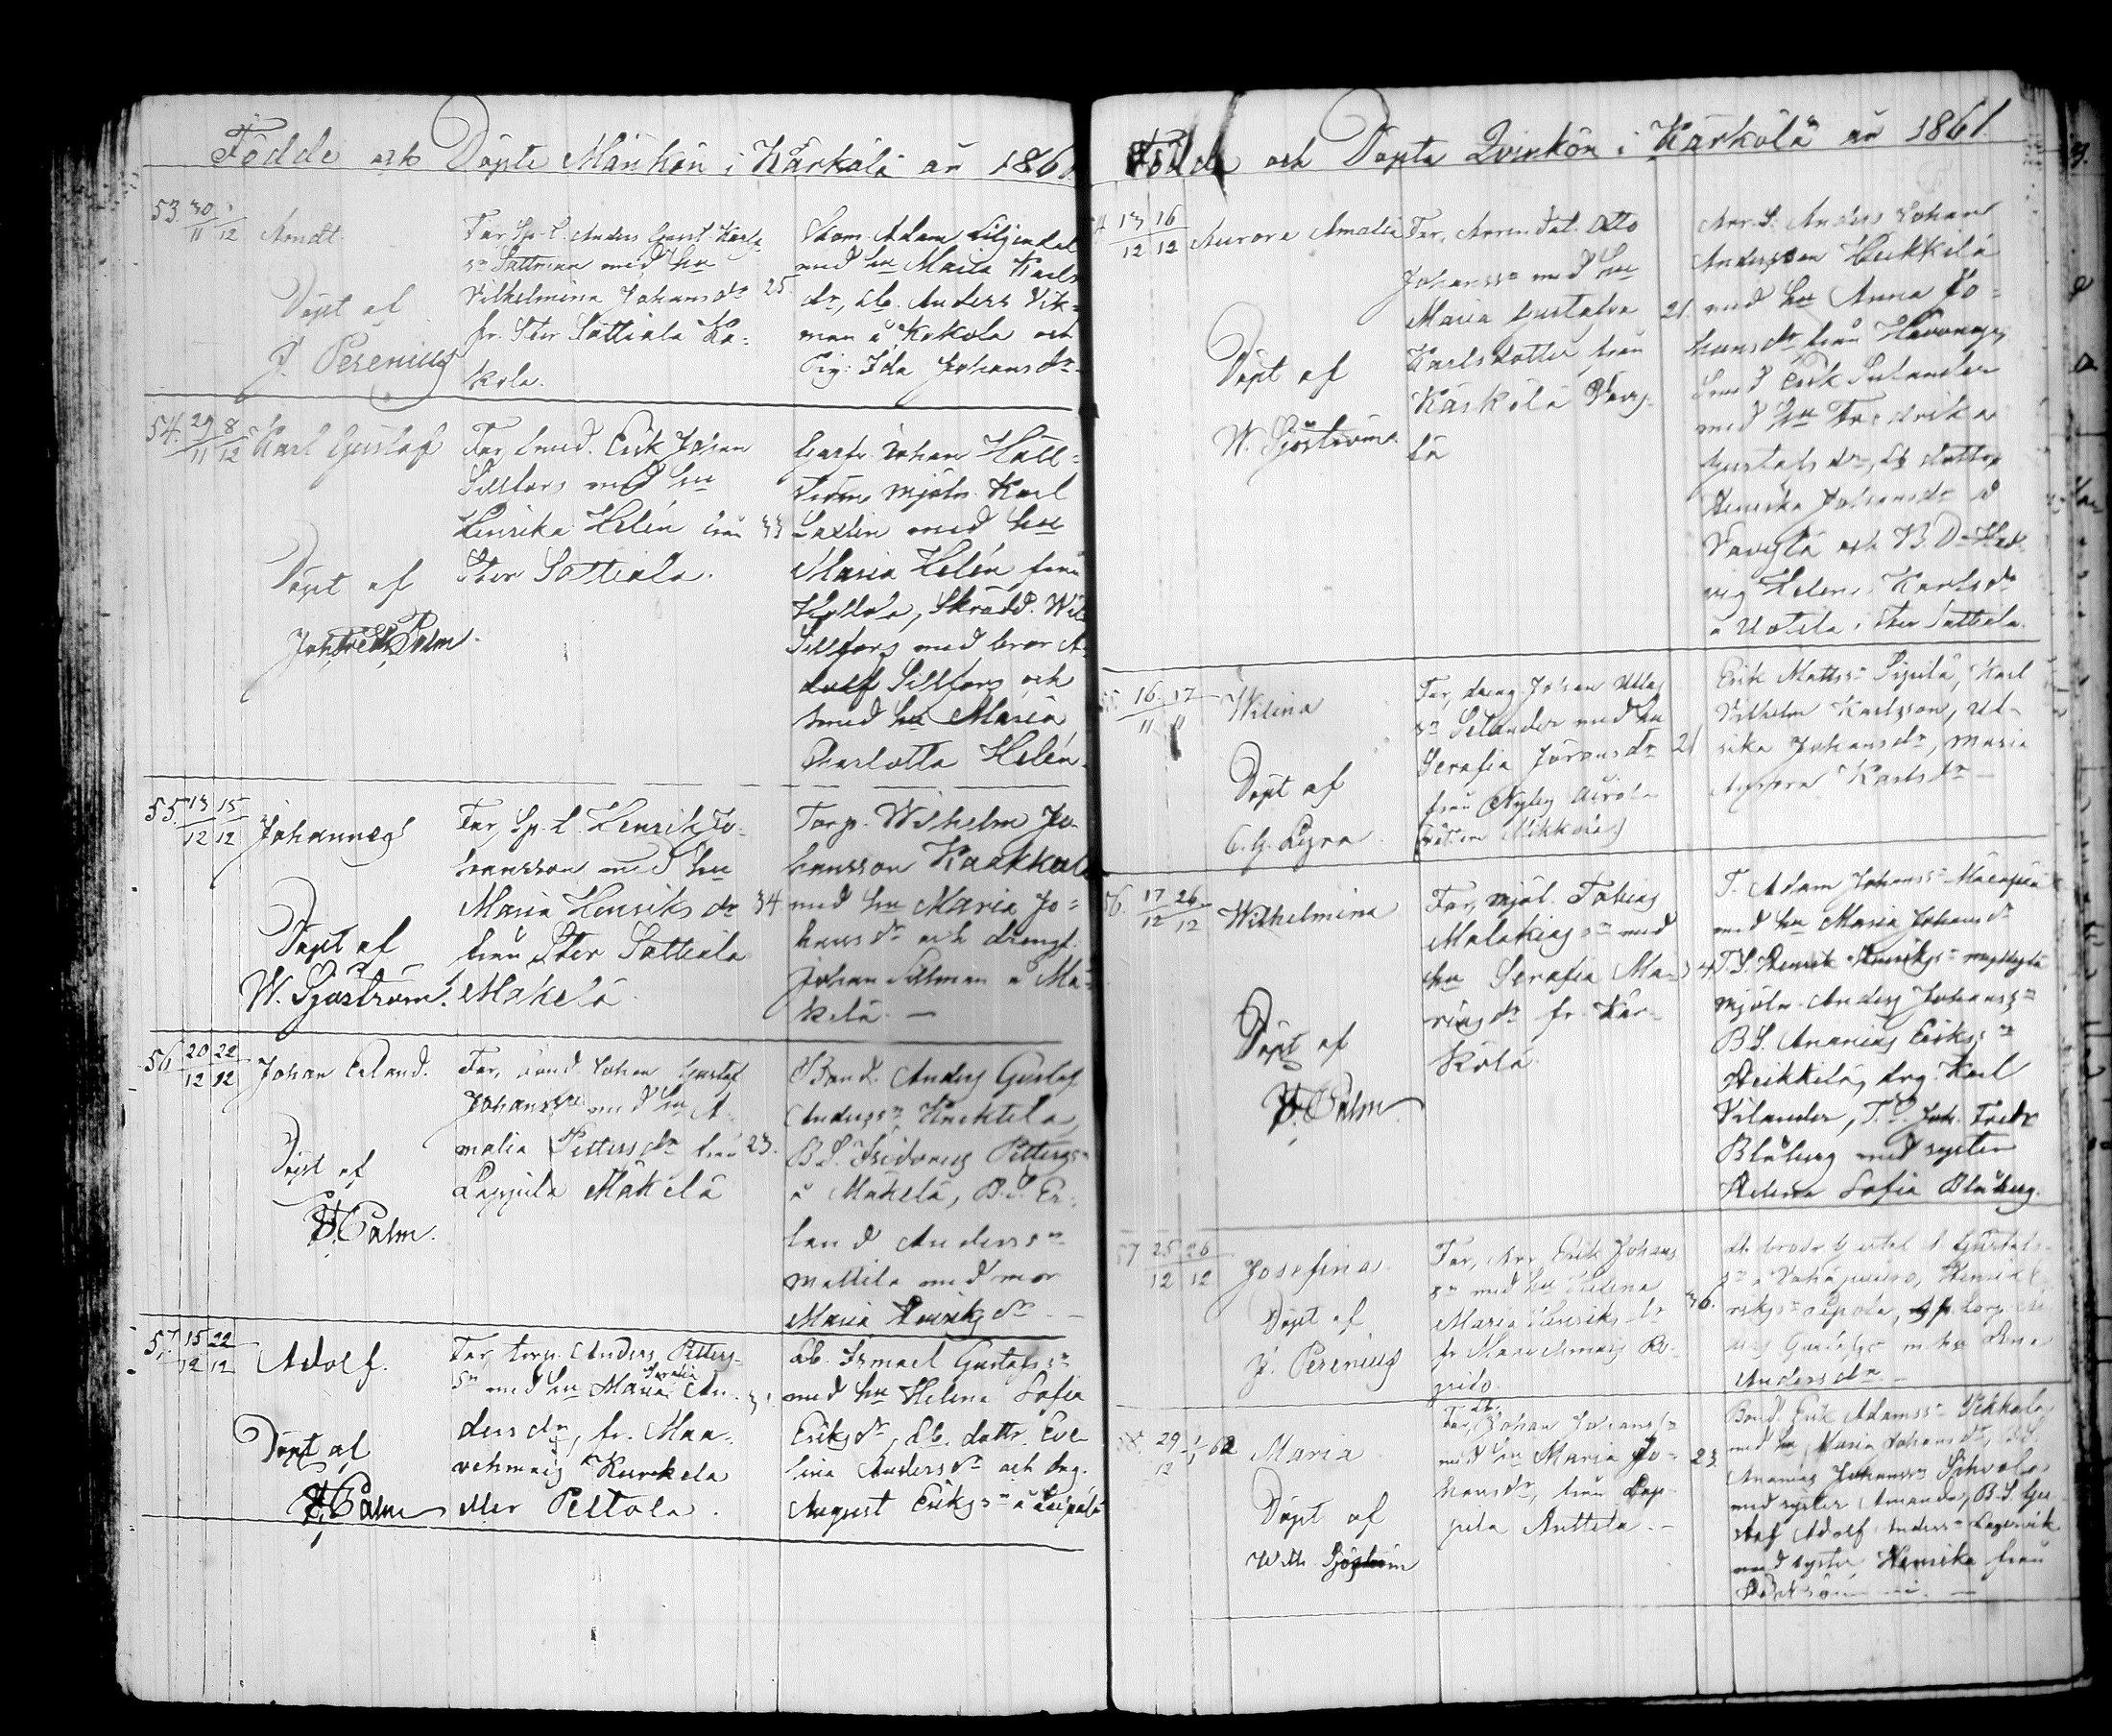 Födde och Döpte Mankön i Kärkölä år 1861
53. 30/11 /12 Arndt.
Döpt af
J. Perenius
Far, Sp. L. Anders Ernst Karls
sn Sattman med hu
Vilhelmina Johansdr 25.
fr. Stor Sattiala Ko-
kola.
Skom. Adam Liljendal
med hu Maria Karls
dr, db. Anders Vik-
man å Kokola och
Pig. Ida Johansdr
54. 29/11 8/12 Karl Gustaf
Döpt af
Palm.
Far, smed. Erik Johan
Sillfors med hu
Henrika Helén från 33
Stor Sattiala.
Johan Häll-
mjöln. Karl
Laxlin med hu
Maria Helén från
Skrädd. Wil
Sillfors med bror A-
dolf Sillfors och
smed hu Maria
Charlotta Helén.
55. 13/12 15/12 Johannes
Döpt af
W. Sjöström.
Far, Sp. L. Henrik Jo-
hansson med hu
Maria Henriksdr 34.
från Stor Sattiala
Mäkelä.
Torp. Wilhelm Jo-
hansson Kaakkola
med hu Maria Jo-
hansdr och drengf.
Johan Salman å Mä-
kelä. —
56. 20/12 22/12 Johan Erland.
Döpt af
Palm.
Far, bond. Johan Gustaf
Johansson med hu A-
malia Pettersdr från 23.
Lappila Mäkelä
Bond. Anders Gustaf
Anderssn Knehtilä,
B.S. Isidorus Petterssn
å Mäkelä, B.S. Er-
land Anderssn
Mattila med mor
Maria Henriksdr —
57. 15/12 22/12 Adolf.
Döpt af
Palm
Far, torp. Anders Petters-
sn med hu Maria Serafia An-
dersdr, fr. Maa-
vehmais Kurkela
eller Peltola.
Db. Ismael Gustafssn
med hu Helena Sofia
Eriksdr, Db. dottr. Eve-
lina Andersdr och drg.
August Erikssn å Leipälä
Födde och Döpta Qvinkön i Kärkölä år 1861.
13/12 16/12 Aurora Amalia
Döpt af
W. Sjöström.
Far, Arren. Otto
Johanssn med hu
Maria Gustafva 21
Karlsdotter, från
Kärkölä Vävy-
lä
Arr. S. Anders Johan
Andersson Heikkilä
med hu Anna Jo-
hansdr, från
Smed Erik Sulander
med hu Fredrika
Gustafsdr, Db dotter
Henrika Johansdr å
Vävylä och B.D. Hed-
vig Helena Karlsdr
å Uotila i Stor Sattiala
55. 16/11 17 Wilina
Döpt af
C. G. Lyra.
Far, dreng Johan
sn Selander med hu
Serafia Göransdr 21
från Nyby
Erik Mattssn Sipilä, Karl
Vilhelm Karlsson, Ul-
rika Johansdr, Maria
Aurora Karlsdr —
56. 17/12 26/12 Wilhelmina
Döpt af
Palm
Far, mjöl. Tobias
Malakiassn med
hu Serafia Ma- 34
riasdr fr. Kär-
kölä
T. Adam Johanssn
med hu Maria Johansdr
T.S. Henrik Henrikssn
mjöln. Anders Johanssn
B.S. Ananias Erikssn
Heikkilä, drg. Karl
Vilander, T.S. Joh. Fredr
Blåberg med syster
Helena Sofia Blåberg.
57 25/12 26/12 Josefina.
Döpt af
J. Perenius
Far, Arr. Erik Johans
sn med hu Helena
Maria Henriksdr 36.
fr Maavehmais Ro-
Gustafs-
Andersdr. —
58. 29/12 1/1 62 Maria
Döpt af
Wilh. Sjöström
Far, Db. Johan Johanssn
med hu Maria Jo- 23
hansdr, från Lap-
pila Anttila. —
Bond. Erik Adamssn
med hu Maria Johansdr,
Ananias Johansson
med syster Amanda, B.S. Gu-
staf Adolf Anderssn
med syster Henrika från